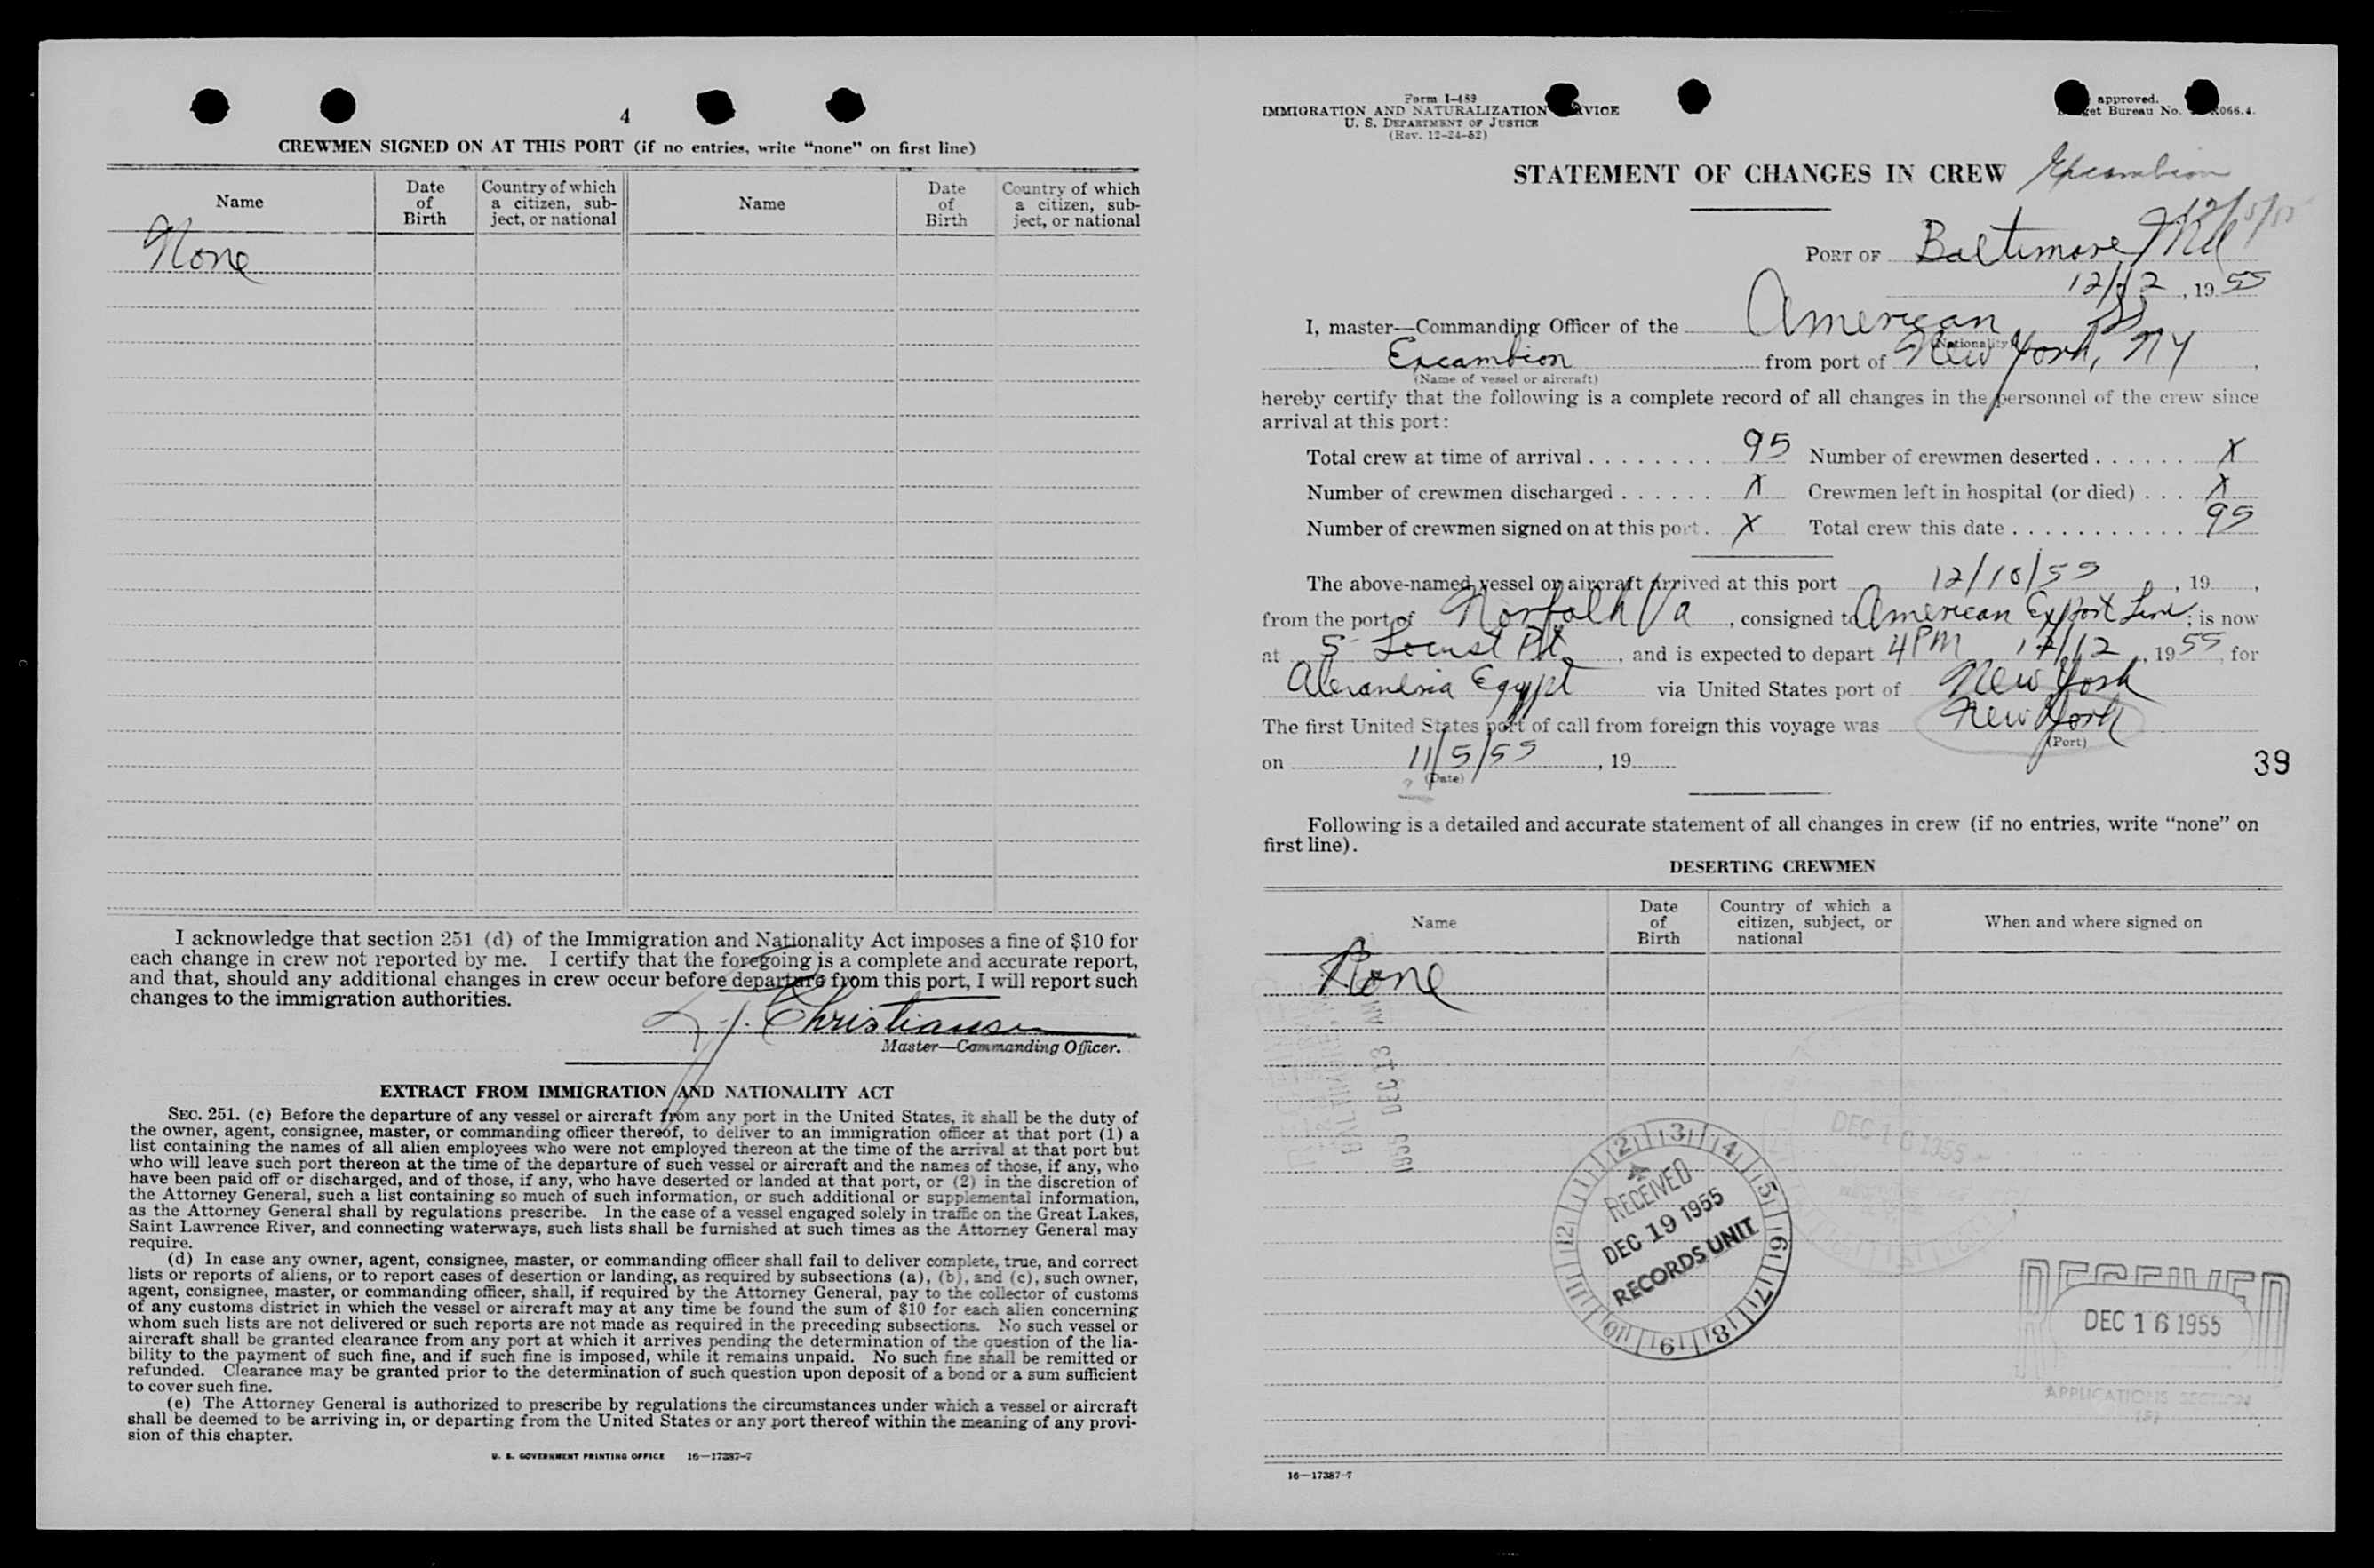 4
CREWMEN SIGNED ON AT THIS PORT (if no entries, write “none” on first line)
Name
Date of Birth
Country of which a citizen, sub-ject, or national
Name
Date of Birth
Country of which a citizen, sub-ject, or national
None
I acknowledge that section 251 (d) of the Immigration and Nationality Act imposes a fine of $10 for
each change in crew not reported by me. I certify that the foregoing is a complete and accurate report,
and that, should any additional changes in crew occur before departure from this port, I will report such
changes to the immigration authorities.
Christiansen
Master—Commanding Officer.
EXTRACT FROM IMMIGRATION AND NATIONALITY ACT
SEC. 251. (c) Before the departure of any vessel or aircraft from any port in the United States, it shall be the duty of
the owner, agent, consignee, master, or commanding officer thereof, to deliver to an immigration officer at that port (1) a
list containing the names of all alien employees who were not employed thereon at the time of the arrival at that port but
who will leave such port thereon at the time of the departure of such vessel or aircraft and the names of those, if any, who
have been paid off or discharged, and of those, if any, who have deserted or landed at that port, or (2) in the discretion of
the Attorney General, such a list containing so much of such information, or such additional or supplemental information,
as the Attorney General shall by regulations prescribe. In the case of a vessel engaged solely in traffic on the Great Lakes,
Saint Lawrence River, and connecting waterways, such lists shall be furnished at such times as the Attorney General may
require.
(d) In case any owner, agent, consignee, master, or commanding officer shall fail to deliver complete, true, and correct
lists or reports of aliens, or to report cases of desertion or landing, as required by subsections (a), (b), and (c), such owner,
agent, consignee, master, or commanding officer, shall, if required by the Attorney General, pay to the collector of customs
of any customs district in which the vessel or aircraft may at any time be found the sum of $10 for each alien concerning
whom such lists are not delivered or such reports are not made as required in the preceding subsections. No such vessel or
aircraft shall be granted clearance from any port at which it arrives pending the determination of the question of the lia-
bility to the payment of such fine, and if such fine is imposed, while it remains unpaid. No such fine shall be remitted or
refunded. Clearance may be granted prior to the determination of such question upon deposit of a bond or a sum sufficient
to cover such fine.
(e) The Attorney General is authorized to prescribe by regulations the circumstances under which a vessel or aircraft
shall be deemed to be arriving in, or departing from the United States or any port thereof within the meaning of any provi-
sion of this chapter.
U. S. GOVERNMENT PRINTING OFFICE 16—17387-7
Form I-489
IMMIGRATION AND NATURALIZATION
U. S. DEPARTMENT OF JUSTICE
(Rev. 12-24-52)
approved.
Bureau No.
STATEMENT OF CHANGES IN CREW Excambion
PORT OF Baltimore Md
12/12, 1955
I, master—Commanding Officer of the American SS
(Nationality)
Excambion from port of New York, NY,
(Name of vessel or aircraft)
hereby certify that the following is a complete record of all changes in the personnel of the crew since
arrival at this port:
Total crew at time of arrival 95 Number of crewmen deserted X
Number of crewmen discharged X Crewmen left in hospital (or died) X
Number of crewmen signed on at this port X Total crew this date 95
The above-named vessel or aircraft arrived at this port 12/10/55, 19,
from the port of Norfolk Va, consigned to American Export Line; is now
at 5 Locust Pt, and is expected to depart 4PM 12/12, 1955, for
Alexandria Egypt via United States port of New York
The first United States port of call from foreign this voyage was New York
(Port)
on 11/5/55, 19
(Date)
39
Following is a detailed and accurate statement of all changes in crew (if no entries, write “none” on
first line).
DESERTING CREWMEN
Name
Date of Birth
Country of which a citizen, subject, or national
When and where signed on
None
RECEIVED
DEC 19 1955
RECORDS UNIT
DEC 16 1955
RECEIVED
DEC 16 1955
APPLICATIONS SECTION
16—17387-7